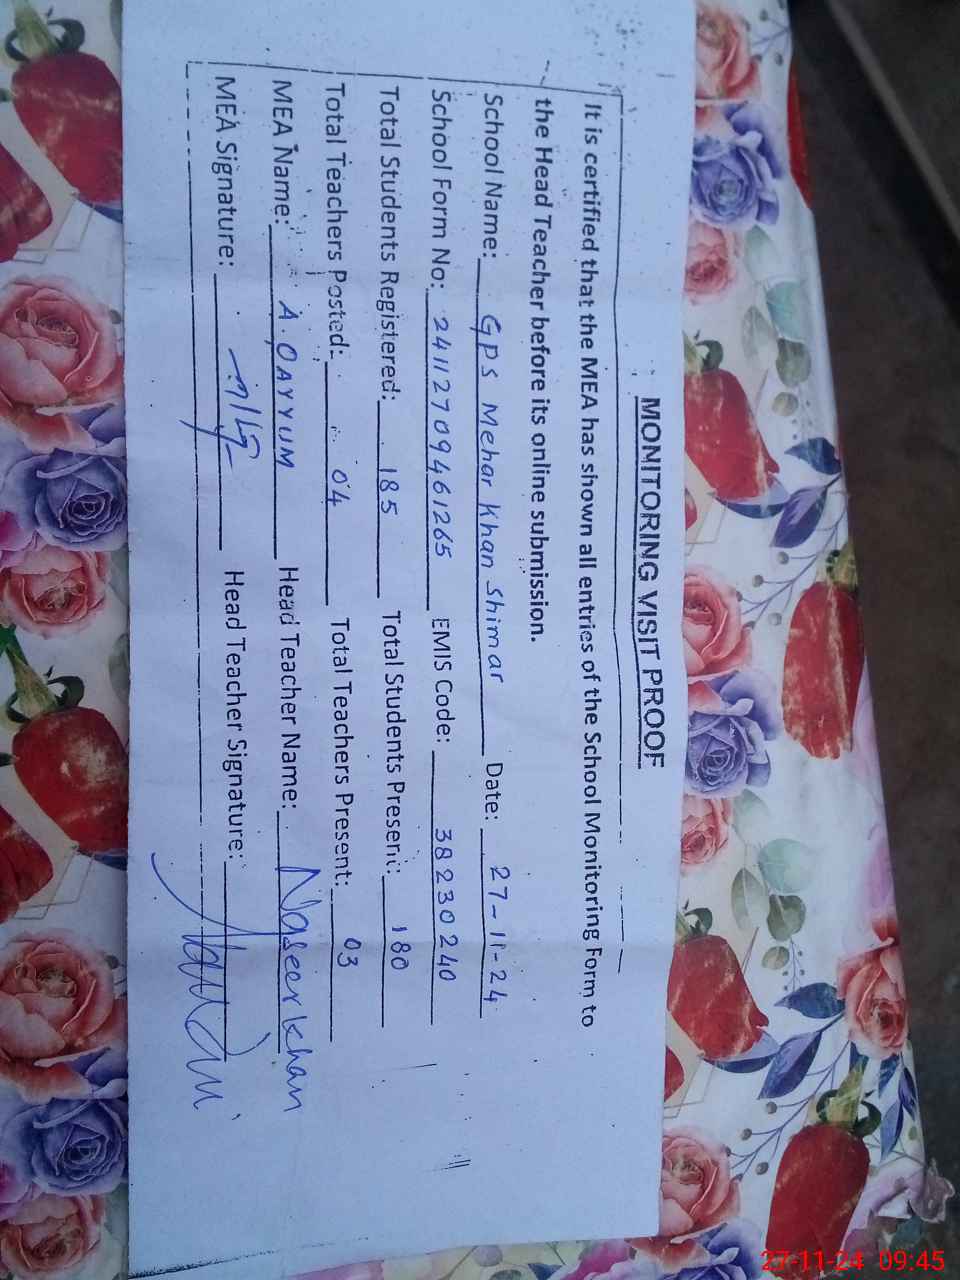 MONITORING VISIT PROOF
It is certified that the MEA has shown all entries of the School Monitoring Form to
the Head Teacher before its online submission.
School Name: GPS Mehar Khan Shimar Date: 27-11-24
School Form No: 24112709461265 EMIS Code: 38230240
Total Students Registered: 185 Total Students Present: 180
Total Teachers Posted: 04 Total Teachers Present: 03
MEA Name: A. QAYYUM Head Teacher Name: Naseer Khan
MEA Signature: Head Teacher Signature:
27-11-24 09:45